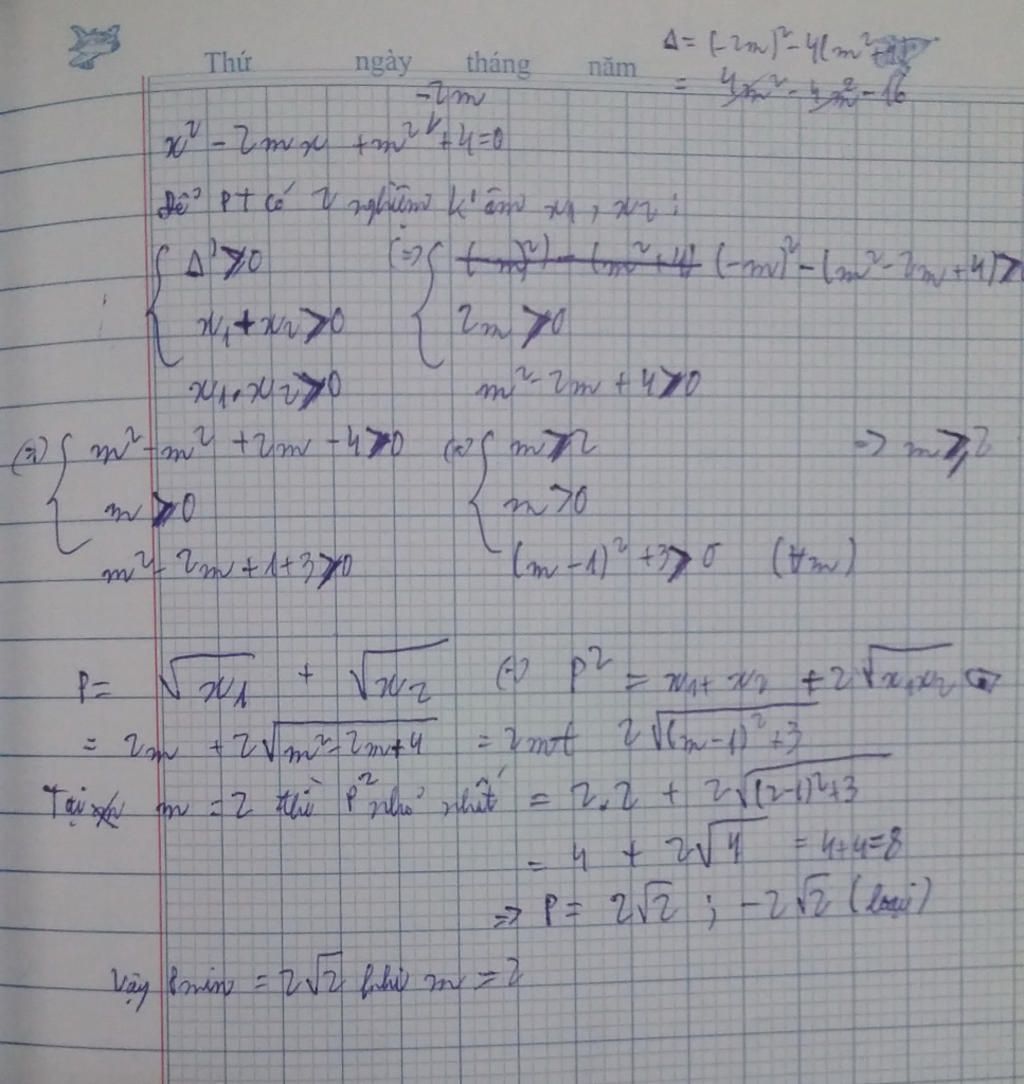 Δ = (-2m)² - 4(m² +
Thứ ngày tháng năm
= 4m² - 4m² - 16
-2m
x² - 2mx + m² + 4 = 0
Để pt có 2 nghiệm k' âm x₁, x₂ :
Δ' ≥ 0 (=) (-m)² - (m² + 4) (-m)² - (m² - 2m + 4) ≥
x₁ + x₂ ≥ 0 2m ≥ 0
x₁.x₂ ≥ 0 m² - 2m + 4 ≥ 0
(=) m² - m² + 2m - 4 ≥ 0 (=) m ≥ 2 => m ≥ 2
m ≥ 0 m > 0
m² - 2m + 1 + 3 ≥ 0 (m - 1)² + 3 ≥ 0 (∀m)
P = √x₁ + √x₂ (=) P² = x₁ + x₂ + 2√x₁x₂
= 2m + 2√m² - 2m + 4 = 2m + 2√(m - 1)² + 3
Tại m = 2 thì P² nhỏ nhất = 2.2 + 2√(2-1)² + 3
= 4 + 2√4 = 4+4=8
=> P = 2√2 ; -2√2 (loại)
Vậy Pmin = 2√2 khi m = 2